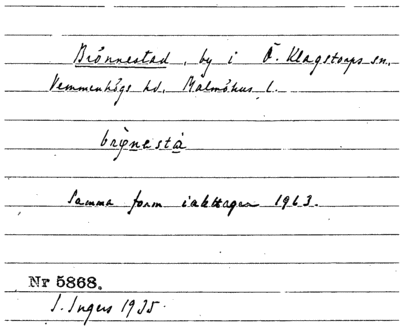 Brönnestad, by i Ö. Klagstorps sn.
Vemmenhögs hd. Malmöhus l.
Samma form iakttagen 1963.
Nr 5868.
I. Ingers 1935.